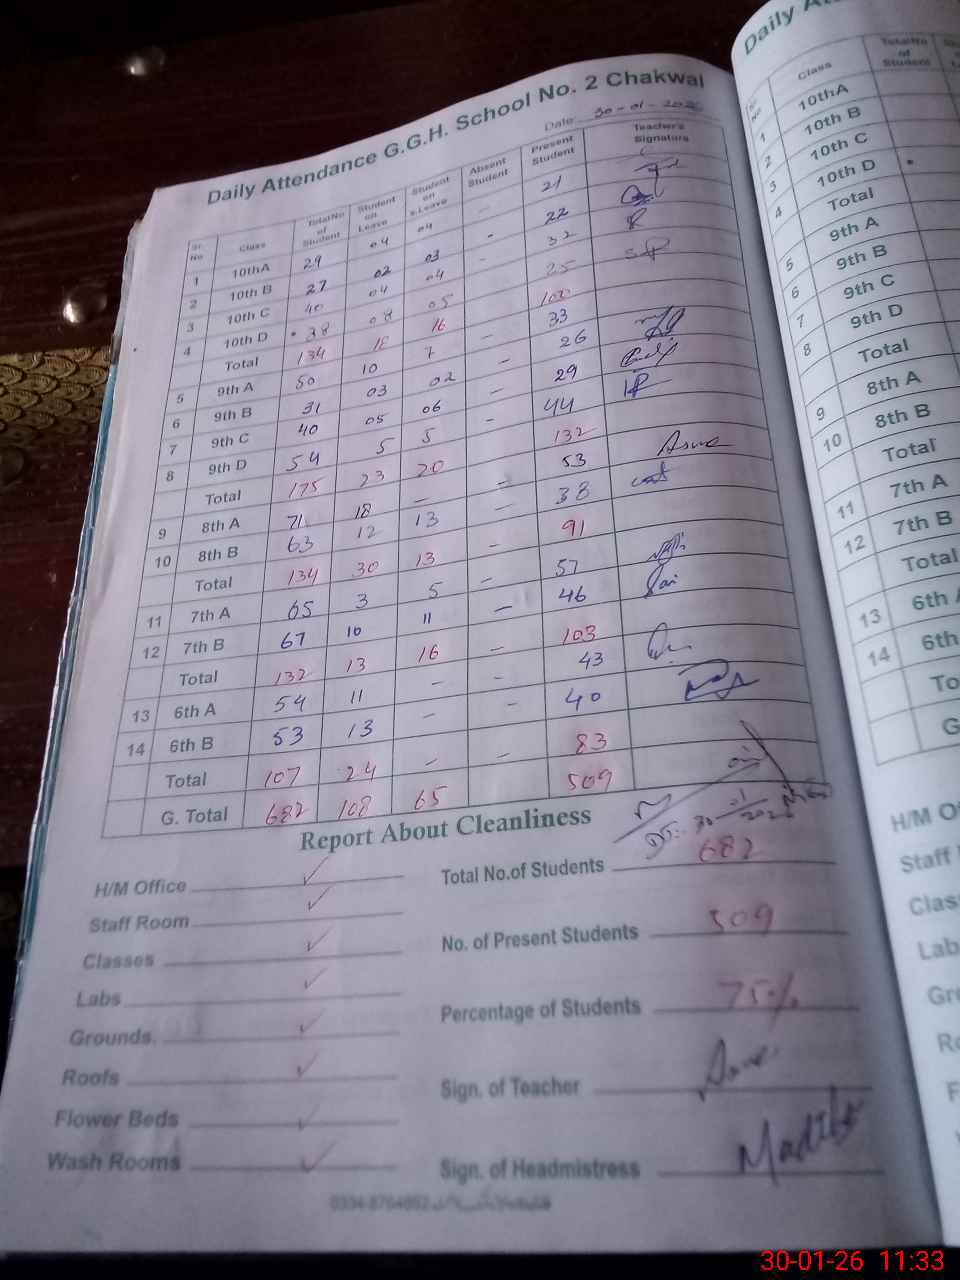 Daily Attendance G.G.H. School No. 2 Chakwal
Date 30-01-2026
Sr. No Class Total No of Student Student on Leave Student on s.Leave Absent Student Present Student Teacher's Signature
1 10thA 29 04 04 - 21
2 10th B 27 02 03 - 22
3 10th C 40 04 04 - 32
4 10th D 38 08 05 25
Total 134 18 16 100
5 9th A 50 10 7 - 33
6 9th B 31 03 02 - 26
7 9th C 40 05 06 - 29
8 9th D 54 5 5 - 44
Total 175 23 20 132
9 8th A 71 18 - - 53 Asma
10 8th B 63 12 13 - 38
Total 134 30 13 - 91
11 7th A 65 3 5 - 57
12 7th B 67 10 11 - 46
Total 132 13 16 - 103
13 6th A 54 11 - - 43
14 6th B 53 13 - - 40
Total 107 24 - - 83
G. Total 682 108 65 509
Report About Cleanliness
H/M Office ✓
Staff Room ✓
Classes ✓
Labs ✓
Grounds. ✓
Roofs ✓
Flower Beds ✓
Wash Rooms ✓
Total No.of Students 682
No. of Present Students 509
Percentage of Students 75%
Sign. of Teacher
Sign. of Headmistress
Daily
Sr. No Class Total No of Student
1 10thA
2 10th B
3 10th C
4 10th D
Total
5 9th A
6 9th B
7 9th C
8 9th D
Total
9 8th A
10 8th B
Total
11 7th A
12 7th B
Total
13 6th
14 6th
To
G
H/M O
Staff
Clas
Lab
Gr
30-01-26 11:33